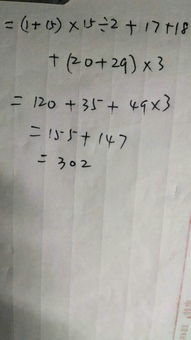 = (1+15)×15÷2 + 17+18
+ (20+29)×3
= 120 + 35 + 49×3
= 155 + 147
= 302